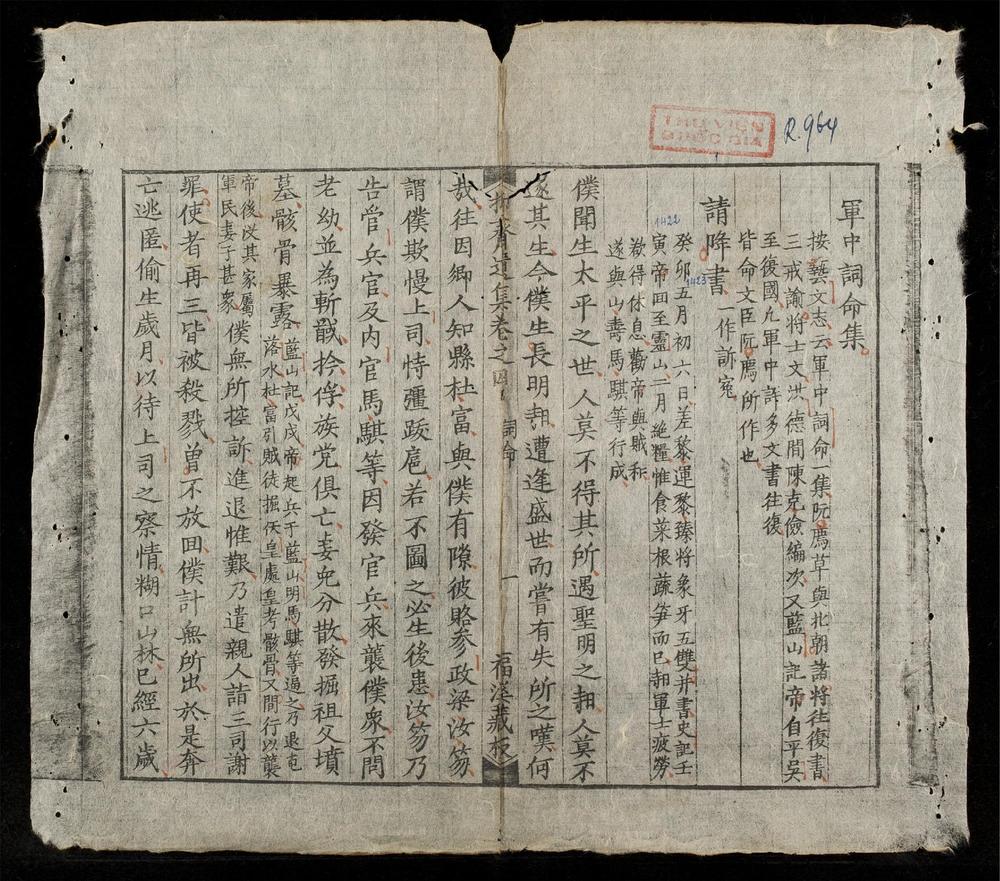 THƯ VIỆN
QUỐC GIA
R.964
軍中詞命集
按藝文志云軍中詞命一集阮廌草與北朝諸將往復書
三戒諭將士文洪德間陳克儉編次又藍山記帝自平吳
至復國凡軍中許多文書往復
皆命文臣阮廌所作也
請降書一作訴寃
癸卯五月初六日差黎運黎臻將象牙五雙并書史記壬
1422
寅帝回至靈山二月絶糧惟食菜根蔬笋而已翓軍士疲勞
1423
欲得休息勸帝與賊和
遂與山壽馬騏等行成
僕聞生太平之世人莫不得其所遇聖明之翓人莫不
遂其生今僕生長明翓遭逢盛世而嘗有失所之嘆何
抑齋遺集卷之四
詞命
一
福溪藏板
哉往因鄉人知縣杜富與僕有隙彼賂參政梁汝笏
謂僕欺慢上司恃彊跋扈若不圖之必生後患汝笏乃
告管兵官及内官馬騏等因發官兵來襲僕衆不問
老幼並為斬馘擒俘族党俱亡妻兒分散發掘祖父墳
墓骸骨暴露藍山記戊戌帝起兵于藍山明馬騏等逼之乃退屯
落水杜富引賊徒掘佚皇處皇考骸骨又間行以襲
帝後收其家屬
軍民妻子甚衆僕無所控訴進退惟艱乃遣親人詣三司謝
罪使者再三皆被殺戮曽不放回僕計無所出於是奔
亡逃匿偷生歲月以待上司之察情糊口山林已經六歲